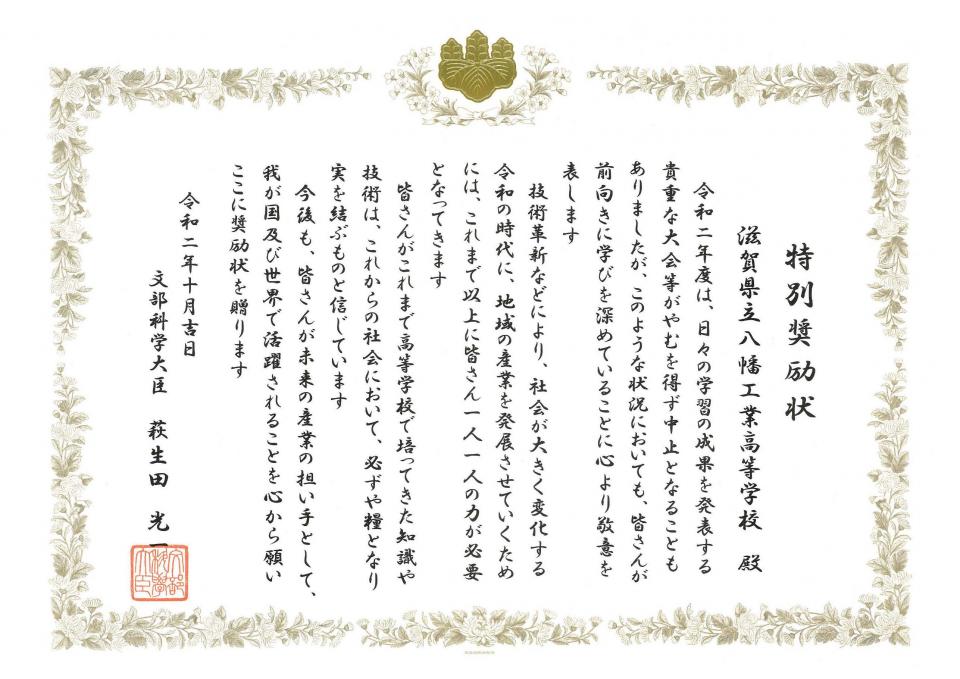 特別奨励状
滋賀県立八幡工業高等学校 殿
令和二年度は、日々の学習の成果を発表する
貴重な大会等がやむを得ず中止となることも
ありましたが、このような状況においても、皆さんが
前向きに学びを深めていることに心より敬意を
表します
技術革新などにより、社会が大きく変化する
令和の時代に、地域の産業を発展させていくため
には、これまで以上に皆さん一人一人の力が必要
となってきます
皆さんがこれまで高等学校で培ってきた知識や
技術は、これからの社会において、必ずや糧となり
実を結ぶものと信じています
今後も、皆さんが未来の産業の担い手として、
我が国及び世界で活躍されることを心から願い
ここに奨励状を贈ります
令和二年十月吉日
文部科学大臣 萩生田 光一
文部科学大臣